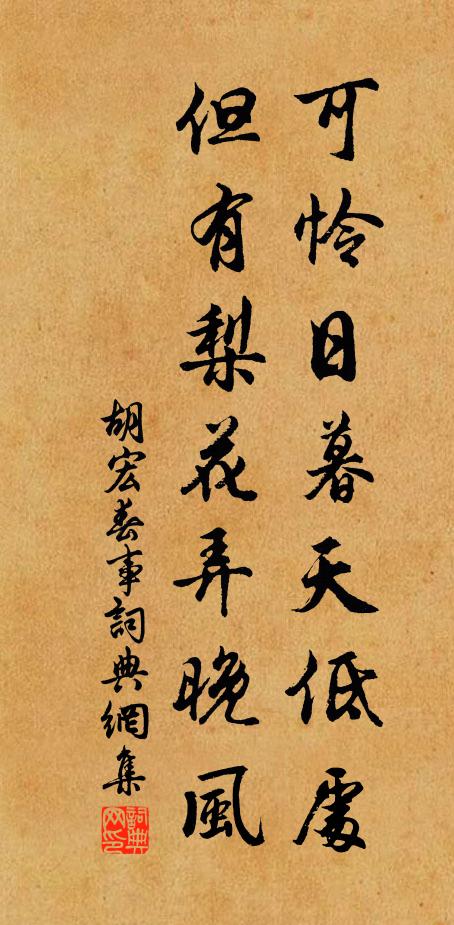 可憐日暮天低處
但有梨花弄晚風
胡宏春事詞典網集
詞典网印